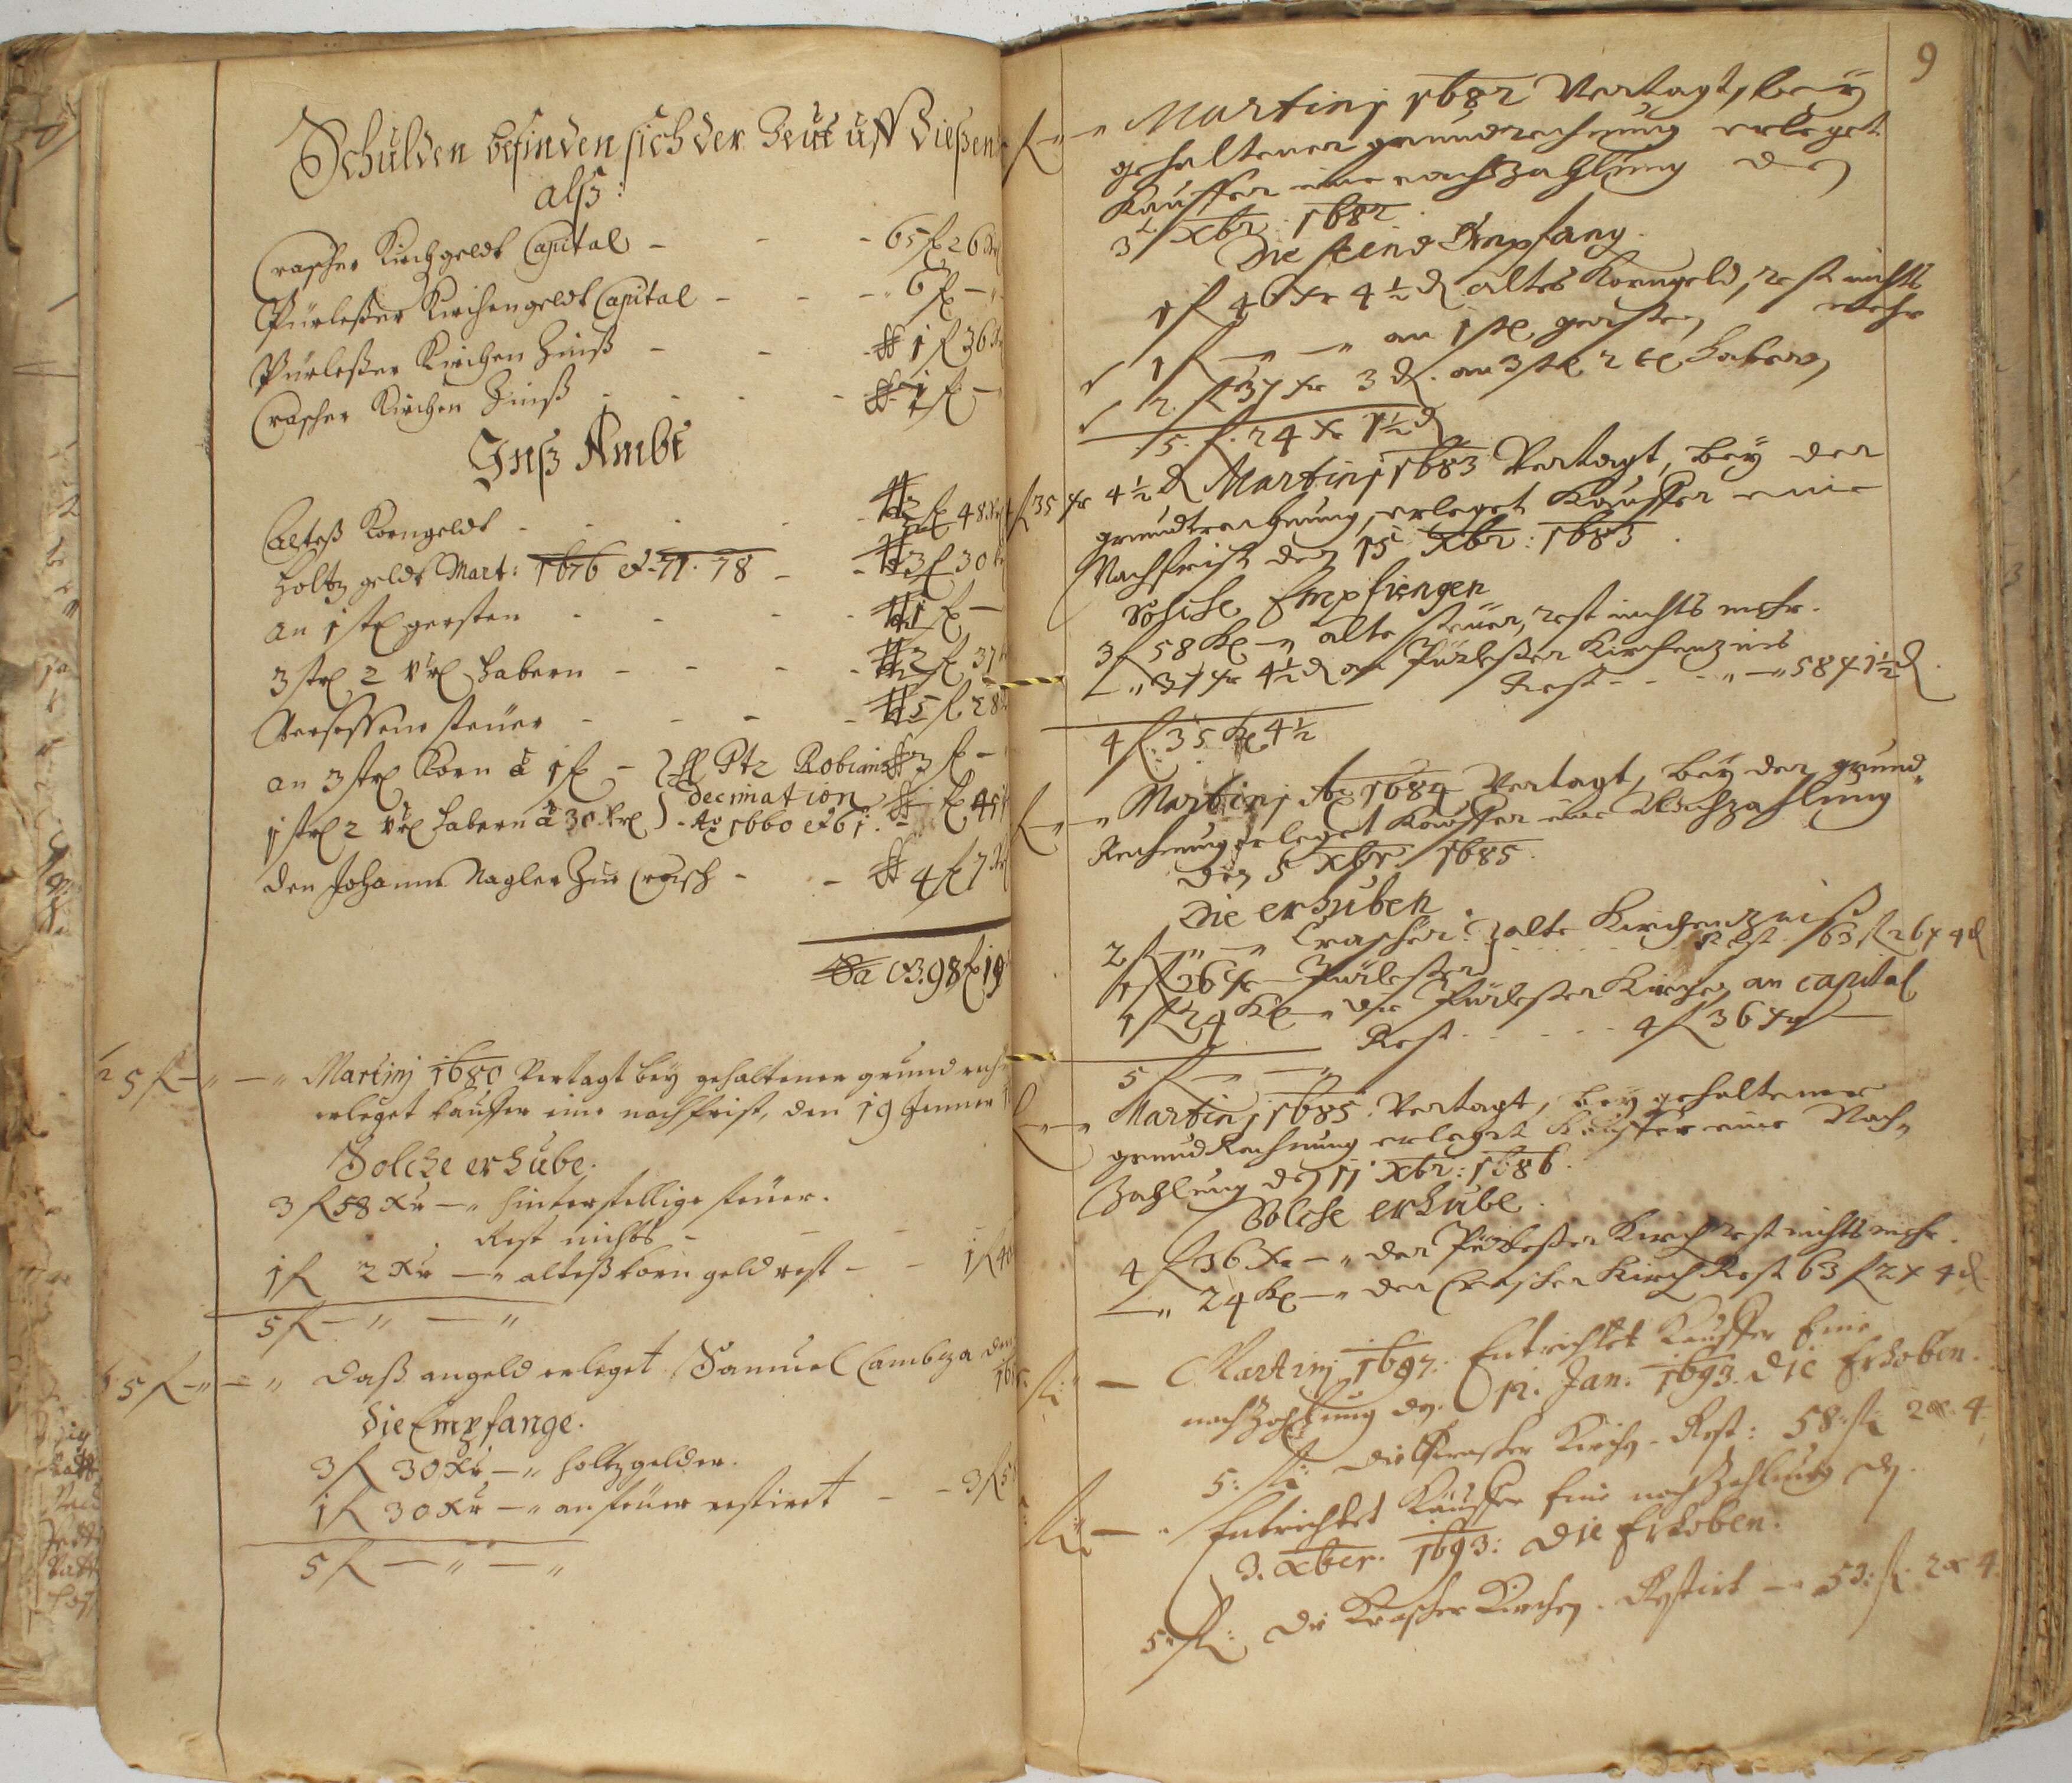 Schulden befinden sich der Zeut uff dießen
alß:
Crascher Kirchgeldt Capital - - - 65 fl 26 kr
Pürleßer Kirchengeldt Capital - - - 6 fl -
Pürleßer Kirchen Zinß - - - 1 fl 36
Crascher Kirchen Zinß - - - 1 fl -
Inß Ambt
Alteß Korngeldt - - - 2 fl 48 kr
Holtz geldt Mart: 1676 et 77. 78 - - 3 fl 30
an 1 str gersten - - - 1 fl -
3 str 2 vrl habern - - - 2 fl 37
Versessene steuer - - - 5 fl 28
an 3 str Korn â 1 fl - Ptr Robians 3 fl -
Decimation
1 str 2 vrl habern â 30 kr - Ao 1660 et 61. - fl 45
den Johann Nagler Zur Crasch - - 4 fl 7 kr
Sa 98 fl 19
5 fl - " - " Martinj 1680 Vertagt bey gehaltener grund
erleget Kauffer eine nachfrist, den 19 Jenner
Solche erhube.
3 fl 58 Xr - " hinterstellige steuer.
Rest nichts -
1 fl 2 Xr - " alteß korn geld rest - - 1 fl
5 fl - " - "
5 fl - " - " Daß angeld erleget Samuel
Die Empfange.
3 fl 30 Xr - " holtzgelder.
1 fl 30 Xr - " an steuer restiret - - 3 fl
5 fl - " - "
9
fl - " Martinj 1682 Vertagt, bey
gehaltener grundrechnung erleget
Kauffer eine nachzahlung den
3 Xbr: 1682
Die seind Empfang.
1 fl 46 Xr 4½ d altes Korngeld, rest nichts
mehr
1 fl - " - " an 1 str gersten
2 fl 37 Xr 3 d. an 3 str 2 vrl habern
5. fl. 24 Xr 1½ d
fl 35 Xr 4½ d Martinj 1683 Vertagt, bey der
grundtrechnung, erleget Kauffer eine
Nachfrist den 15 Xbr: 1683.
Solche Empfiengen
3 fl 58 kr - " alte steuer, rest nichts mehr.
" 37 Xr 4½ d an Pürleßer Kirchenzins
Rest - - - " - " 58 X 1½ d.
4 fl. 35 kr 4½
fl - " - " Martinj Ao 1684 Vertagt, bey der grund
Rechnung erleget Kauffer eine Nachzahlung
den 5 Xbr. 1685.
Die erhuben.
2 fl - " - " Crascher alte Kirchenzinß
Rest 63 fl 26 X 4 d
1 fl 36 Xr - Pürleßer
1 fl 24 kr - " der Pürleßer Kirchen an capital
Rest - - - - 4 fl 36 Xr -
5 fl - " - "
fl - " Martinj 1685. Vertagt, bey gehaltener
grund Rechnung erleget Kauffer eine Nach
Zahlung den 11 Xbr: 1686.
Solche erhube.
4 fl 36 Xr - " der Pürleßer Kirch rest nichts mehr.
- " 24 kr - " der Crascher Kirch Rest 63 fl 2 X 4 d
fl: - Martinj 1692. Entrichtet Kauffer Eine
nachZahlung den. 12. Jan. 1693. Die Erhoben.
5: fl: die Krascher Kirchen - Rest: 58: fl: 2 X. 4
fl: - . Entrichtet Kauffer Eine nachZahlung den.
3. Xber. 1693: Die Erhoben.
5: fl: Die Krascher Kirchen. Restirt - 53: fl: 2 X 4